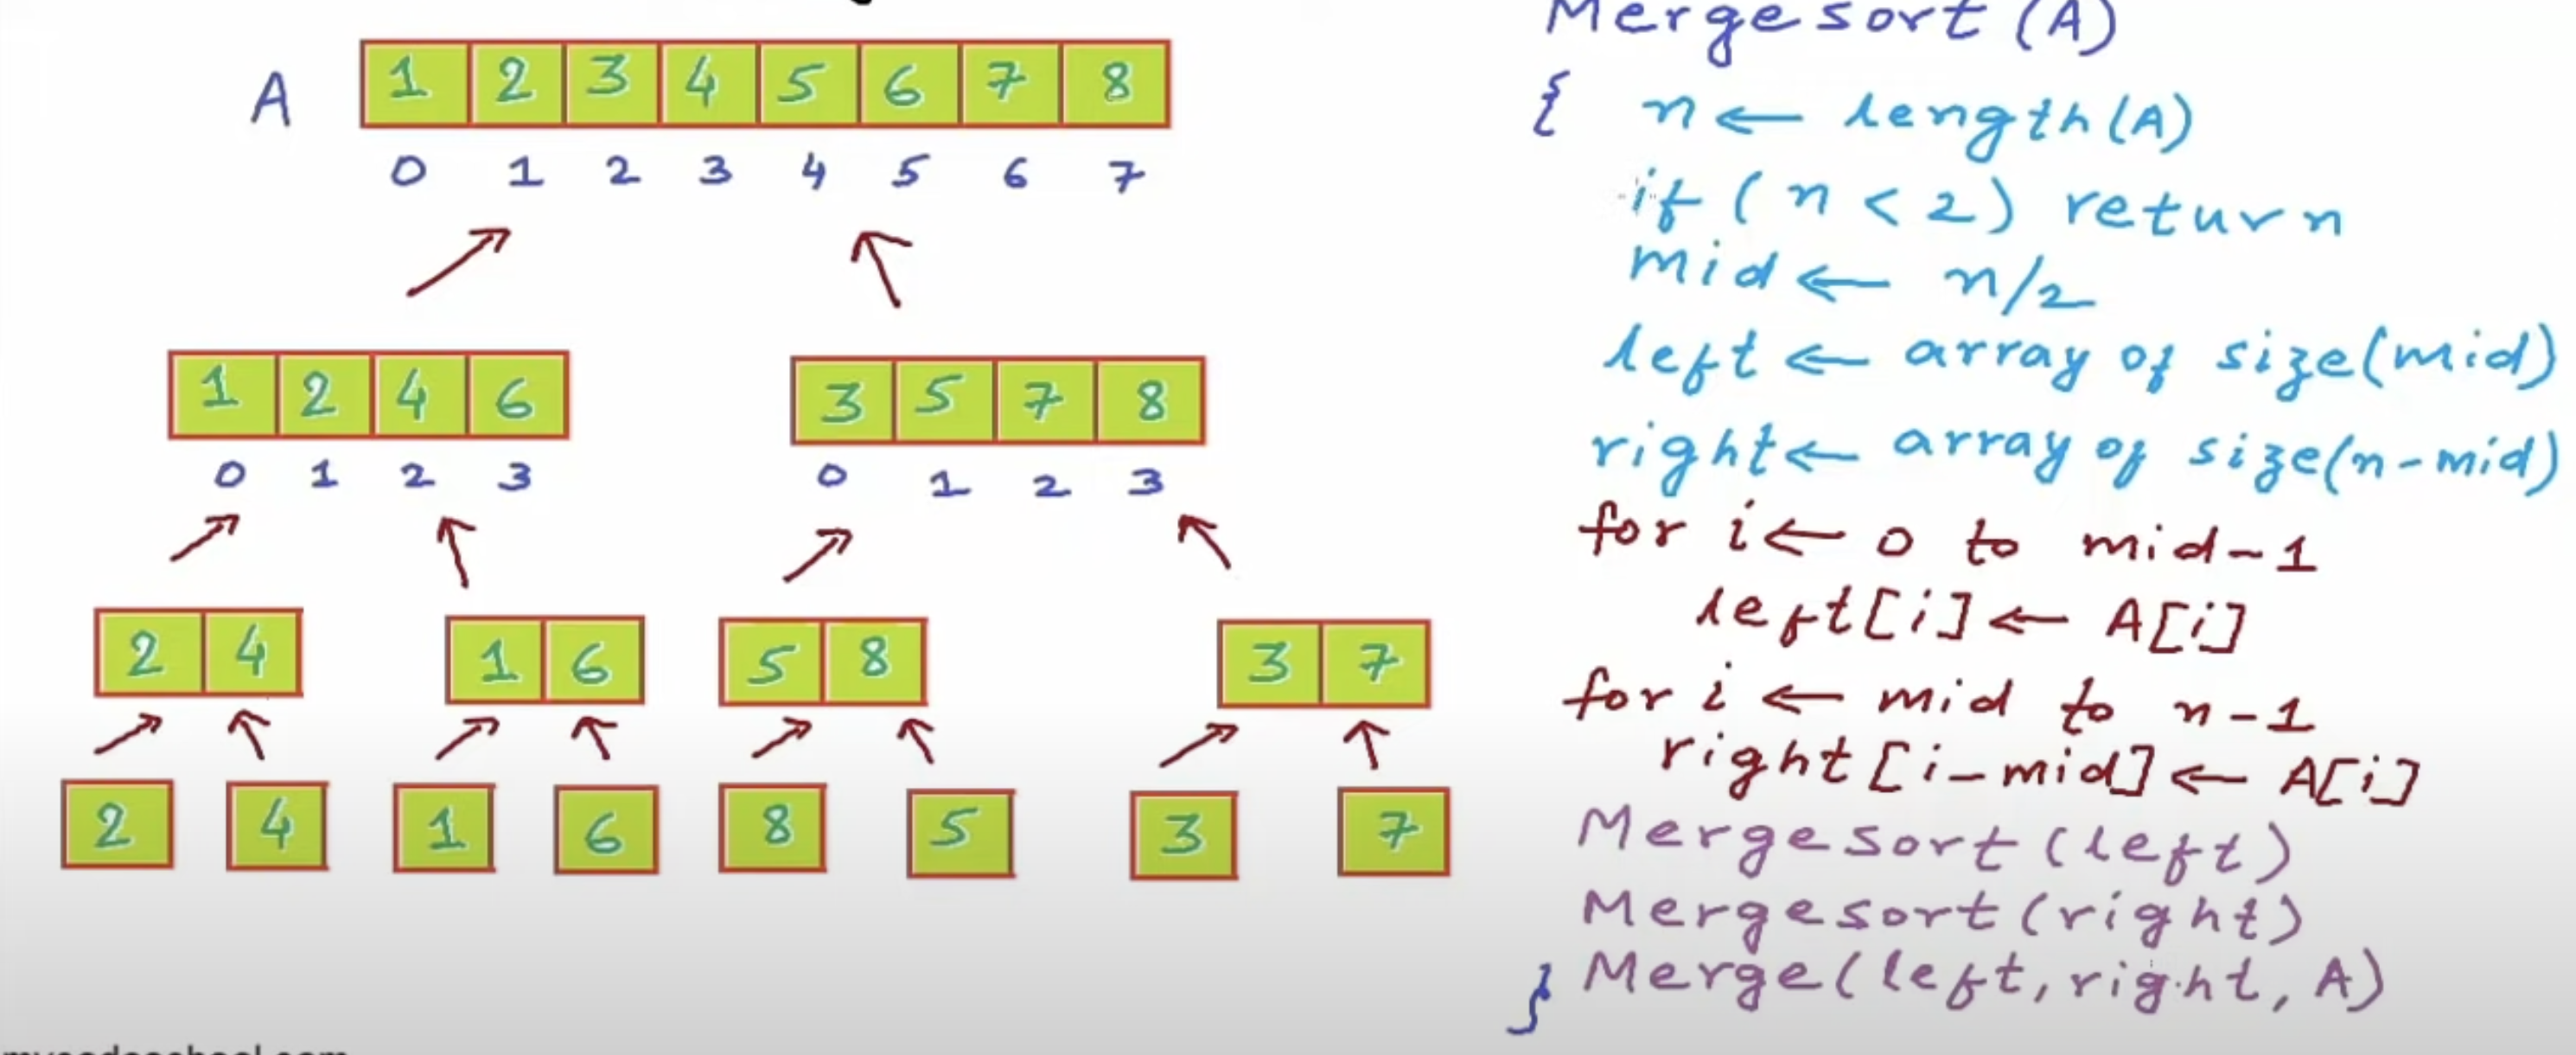 A 1 2 3 4 5 6 7 8
0 1 2 3 4 5 6 7
1 2 4 6
0 1 2 3
3 5 7 8
0 1 2 3
2 4
1 6
5 8
3 7
2 4 1 6 8 5 3 7
Mergesort (A)
{ n ← length(A)
if (n < 2) return
mid ← n/2
left ← array of size(mid)
right ← array of size(n-mid)
for i ← 0 to mid-1
left[i] ← A[i]
for i ← mid to n-1
right[i-mid] ← A[i]
Mergesort (left)
Mergesort (right)
} Merge(left, right, A)